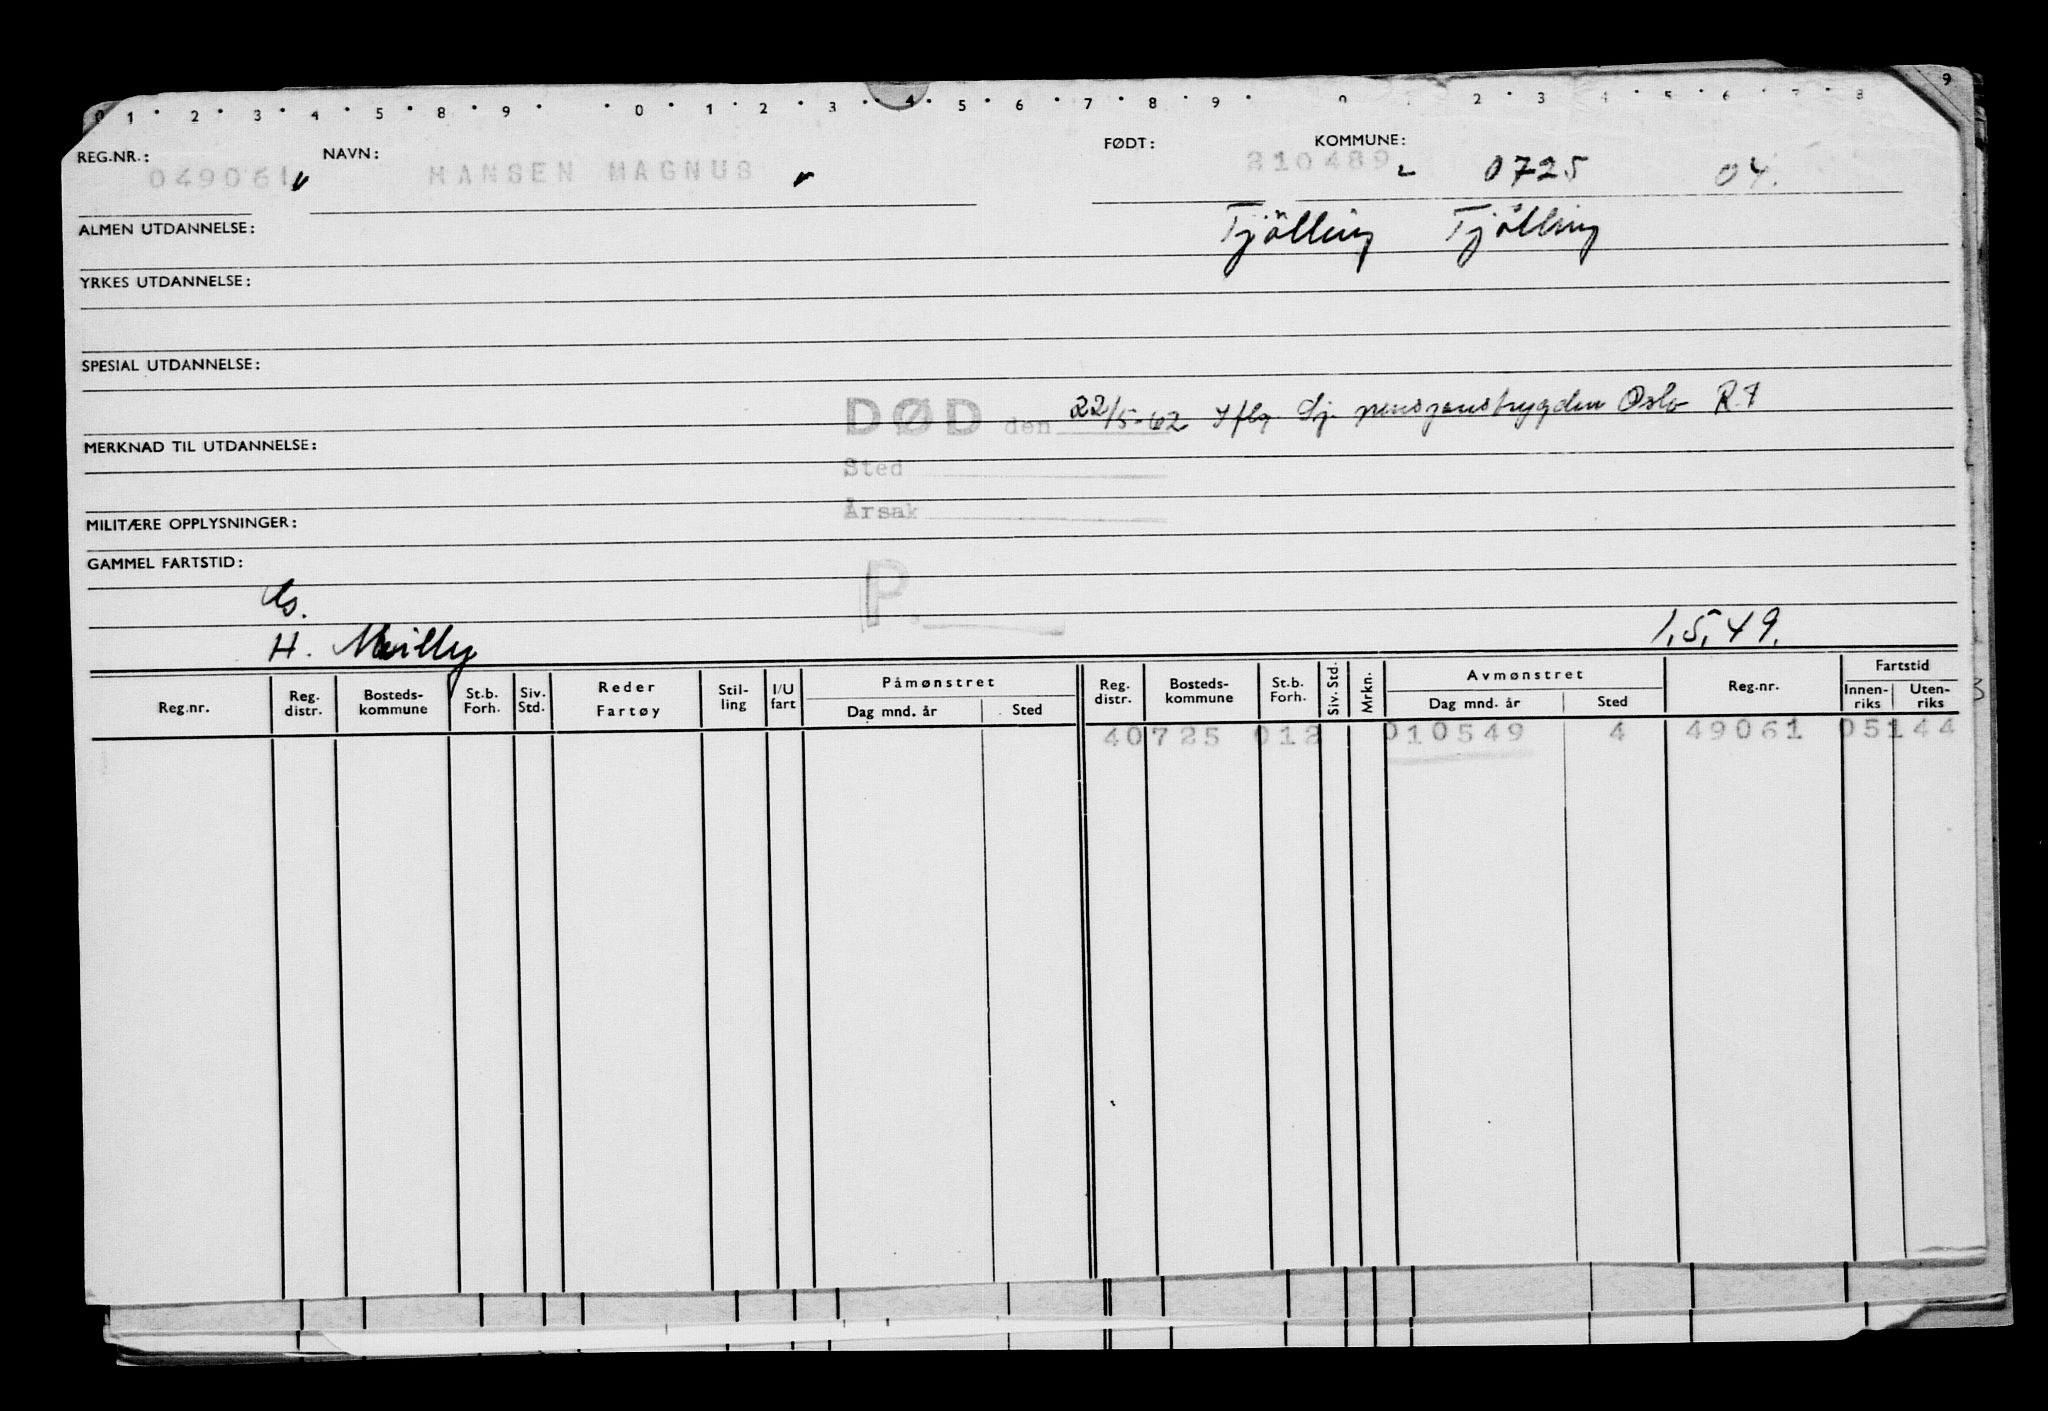 0 1 2 3 4 5 8 9 0 1 2 3 4 5 6 7 8 9 0 2 3 4 5 6 7 8 9
REG.NR.: 049061 NAVN: HANSEN MAGNUS FØDT: 210489 KOMMUNE: 0725 04.
ALMEN UTDANNELSE: Tjölling Tjölling
YRKES UTDANNELSE:
SPESIAL UTDANNELSE:
DØD den 22/5-62 Iflg Sj. pensjonstrygden Oslo R.T
MERKNAD TIL UTDANNELSE:
Sted
MILITÆRE OPPLYSNINGER: Årsak
GAMMEL FARTSTID:
P.
H. 1.5.49.
Reg.nr. Reg. distr. Bosteds-kommune St.b. Forh. Siv. Std. Reder Fartøy Stil-ling I/U fart Påmønstret Dag mnd. år Sted Reg. distr. Bosteds-kommune St.b. Forh. Siv. Std. Mrkn. Avmønstret Dag mnd. år Sted Reg.nr. Fartstid Innen-riks Uten-riks
40725 012 010549 4 49061 05144